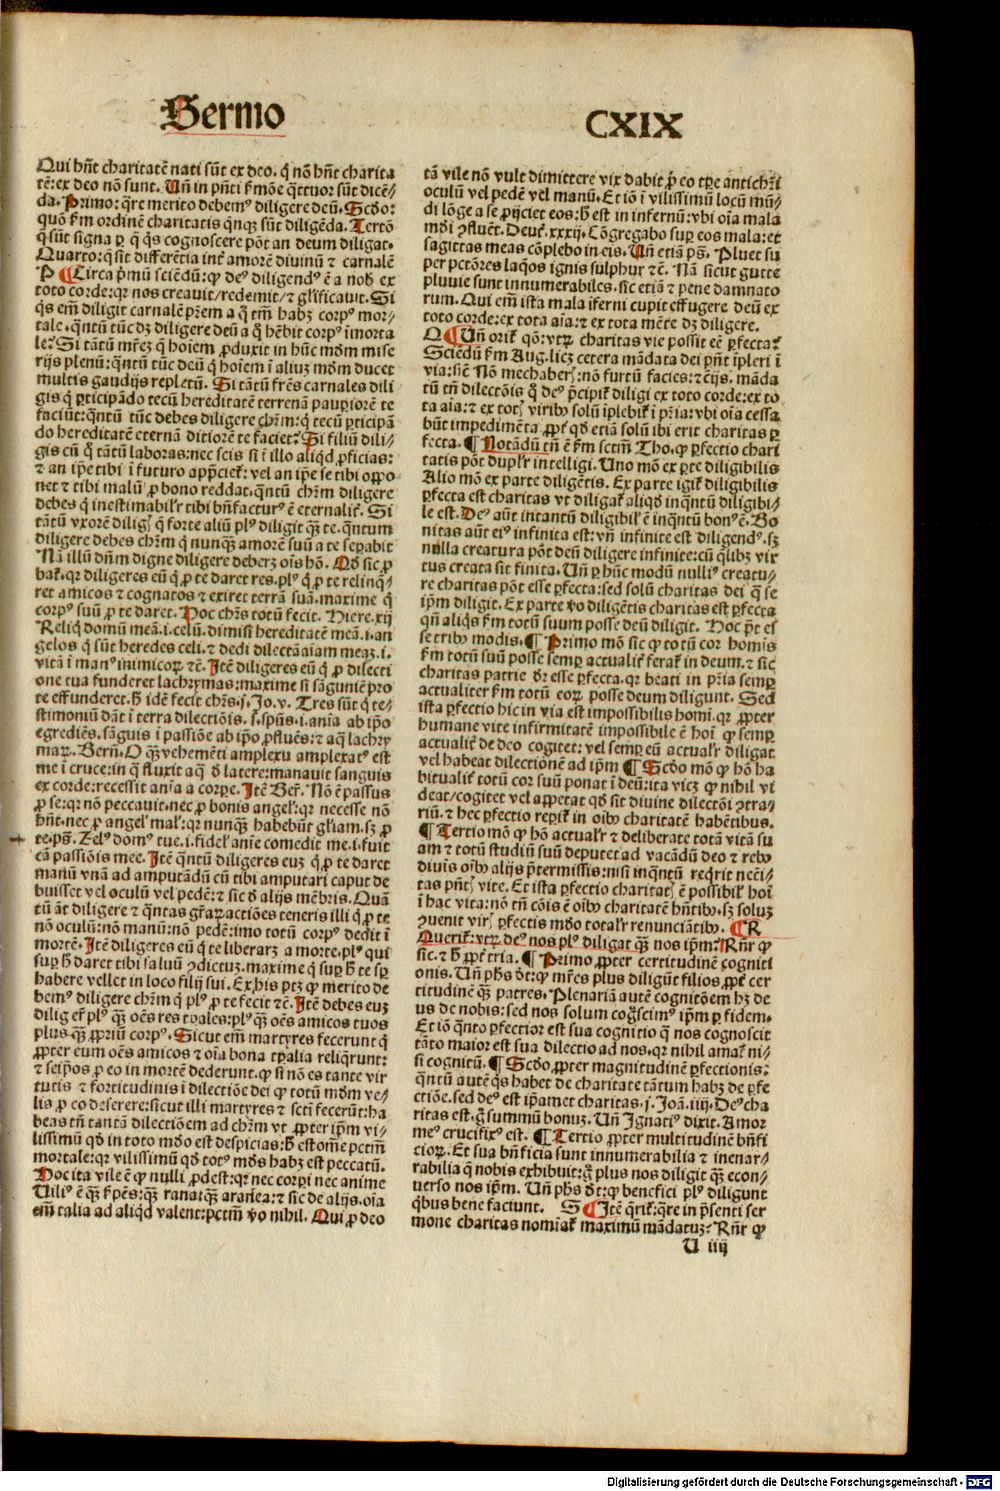 Sermo
CXIX
Qui hñt charitatē nati sūt ex deo. q̇ nō hñt charita
tē: ex deo nō sunt. Uñ in pñti ẜmōe q̄ttuor sūt dicē⸗
da. Primo: q̄re merito debemꝰ diligere deū. Scd̄o:
quō ẜm ordinē charitatis q̇nqꝫ sūt diligēda. Tertō
q̄ sūt signa ꝑ q̄ q̇s cognoscere pōt an deum diligat.
Quarto: q̄ sit differētia int̄ amorē diuinū ⁊ carnalē
P ¶ Circa ṗmū sciēdū: ꝙ deꝰ diligendꝰ ē a nob̄ ex
toto corde: qꝛ nos creauit/redemit/⁊ gl̄ificauit. Si
q̇s em̄ diligit carnalē pr̄em a q̇ tm̄ habꝫ corpꝰ mor⸗
tale. q̄ntū tūc dꝫ diligere deū a q̇ hēbit corpꝰ īmorta
le? Si tātū mr̄eꝫ q̄ hoīem ꝓduxit in hūc mōm mise
rijs plenū: q̄ntū tūc deū q̇ hoīem ī aliuꝫ mōm ducet
multis gaudijs repletū. Si tātū fr̄es carnales dili
gis q̇ ꝑticipādo tecū hereditatē terrenā pauꝑiorē te
faciūt: q̄ntū tūc debes diligere chr̄m: q̇ tecū ꝑticipā
do hereditatē eternā ditiorē te faciet? Si filiū dili⸗
gis cū q̇ tātū laboras: nec scis si ī illo aliqd̄ ꝓficias:
⁊ an ip̄e tibi ī futuro app̄ciet᷑: vel an ip̄e se tibi oppo
net ⁊ tibi malū ꝓ bono reddat. q̄ntū chr̄m diligere
debes q̇ inestimabilr̄ tibi bn̄facturꝰ ē eternalit᷑. Si
tātū vxorē diligꝭ q̄ forte aliū plꝰ diligit qꝫ te. q̄ntum
diligere debes chr̄m q̇ nunqꝫ amorē suū a te seꝑabit
Nā illū dn̄m digne diligere deberꝫ oīs hō. Qd̄ sic ꝓ
bat᷑. qꝛ diligeres eū q̇ ꝓ te daret res. plꝰ q̇ ꝓ te relinq̄⸗
ret amicos ⁊ cognatos ⁊ exiret terrā suā. maxime q̇
corpꝰ suū ꝓ te daret. Hoc chr̄s totū fecit. Hiere. xij
Reliq̇ domū meā. i. celū. dimisi hereditatē meā. i. an
gelos q̇ sūt heredes celi. ⁊ dedi dilectā aīam meaꝫ. i.
vitā ī manꝰ inimicoꝝ ⁊c̄. Itē diligeres eū q̇ ꝓ dilecti
one tua funderet lachrymas: maxime si sāguinē pro
te effunderet. h̄ idē fecit chr̄s. j. Jo. v. Tres sūt q̇ te⸗
stimoniū dāt ī terra dilectiōis. s. sp̄us. i. aīa ab ip̄o
egrediēs. sāguis ī passiōe ab ip̄o ꝓfluēs: ⁊ aq̄ lachry
maꝝ. Bern̄. O qꝫ vehemēti amplexu amplexatꝰ est
me ī cruce: in q̄ fluxit aq̄ d̄ latere: manauit sanguis
ex corde: recessit aīa a corpe. Itē Ber̄. Nō ē passus
ꝓ se: qꝛ nō peccauit. nec ꝓ bonis angel᷑: qꝛ necesse nō
hn̄t. nec ꝓ angel᷑ mal᷑: qꝛ nunqꝫ habebūt gr̄am. sꝫ ꝓ
te. ps̄. Zelꝰ domꝰ tue. i. fidel᷑ aīe comedit me. i. fuit
cā passiōis mee. Itē q̄ntū diligeres euꝫ q̇ ꝓ te daret
manū vnā ad amputādū cū tibi amputari caput de
buisset vel oculū vel pedē: ⁊ sic d̄ alijs mēbris. Quā
tū āt diligere ⁊ q̄ntas gr̄aꝝ actiōes teneris illi q̇ ꝓ te
nō oculū: nō manū: nō pedē: imo totū corpꝰ dedit ī
mortē. Itē diligeres eū q̇ te liberarꝫ a morte. plꝰ qui
suꝑ h̄ daret tibi saluū ꝯductuꝫ. maxime q̇ suꝑ h̄ te sꝑ
habere vellet in loco filij sui. Ex his ptꝫ ꝙ merito de
bemꝰ diligere chr̄m q̇ plꝰ ꝓ te fecit ⁊c̄. Itē debes euꝫ
dilig er̄ plꝰ qꝫ oēs res tꝑales: plꝰ qꝫ oēs amicos tuos
plus qꝫ ꝓpriū corpꝰ. Sicut em̄ martyres fecerunt q̇
ꝓpter eum oēs amicos ⁊ oīa bona tꝑalia reliq̄runt:
⁊ seip̄os ꝓ eo in mortē dederunt. ꝙ si nō es tante vir
tutis ⁊ fortitudinis ī dilectiōe dei ꝙ totū mōm ve⸗
lis ꝓ eo deserere: sicut illi martyres ⁊ sctī fecerūt: ha
beas tn̄ tantā dilectiōem ad chr̄m vt ꝓpter ip̄m vi⸗
lissimū qd̄ in toto mōdo est despicias: h̄ est om̄e pctm̄
mortale: qꝛ vilissimū qd̄ totꝰ mōs habꝫ est peccatū.
Hoc ita vile ē ꝙ nulli ꝓdest: qꝛ nec corpri nec anime
Viliꝰ ē qꝫ ẜpēs: qꝫ rana: qꝫ aranea: ⁊ sic de alijs. oīa
em̄ talia ad aliqd̄ valent: pctm̄ vo nihil. Qui ꝓ deo
tā vile nō vult dimittere vix dabit ꝓ eo tꝑe antichr̄i
oculū vel pedē vel manū. Et iō ī vilissimū locū mū⸗
di lōge a se ꝓijciet eos: h̄ est in infernū: vbi oīa mala
mōi ꝯfluēt. Deut᷑. xxxij. Cōgregabo suꝑ eos mala: et
sagittas meas cōplebo in eis. Uñ etiā ps̄. Pluet su
per pctōres laq̄os ignis sulphur ⁊c̄. Nā sicut gutte
pluuie sunt innumerabiles. sic etiā ⁊ pene damnato
rum. Qui em̄ ista mala īferni cupit effugere deū ex
toto corde: ex tota aīa: ⁊ ex tota mēte dꝫ diligere.
Q ¶ Uñ orit᷑ qō: vtꝝ charitas vie possit eē ꝑfecta?
Sciēdū ẜm Aug. licꝫ cetera mādata dei pn̄t īpleri ī
via: sic̄ Nō mechaberꝭ: nō furtū facies: ⁊c̄ijs. māda
tū tn̄ dilectiōis q̇ deꝰ p̄cipit᷑ diligi ex toto corde: ex to
ta aīa: ⁊ ex totꝭ viribꝰ solū īplebit᷑ ī pr̄ia: vbi oīa cessa
būt impedimēta. ꝓpt᷑ qd̄ etiā solū ibi erit charitas ꝑ
fecta. ¶ Notādū tn̄ ē ẜm sctm̄ Tho. ꝙ ꝑfectio chari
tatis pōt duplr̄ intelligi. Uno mō ex ꝑte diligibilis
Alio mō ex parte diligētis. Ex parte igit᷑ diligibilis
ꝑfecta est charitas vt diligat᷑ aliqd̄ inq̄ntū diligibi⸗
le est. Deꝰ aūt intantū diligibil᷑ ē inq̄ntū bonꝰ ē. Bo
nitas aūt eiꝰ infinita est: vn̄ infinite est diligendꝰ. sꝫ
nulla creatura pōt deū diligere infinite: cū q̄libꝫ vir
tus creata sit finita. Uñ ꝑ hūc modū nulliꝰ creatu⸗
re charitas pōt esse ꝑfecta: sed solū charitas dei q̄ se
ip̄m diligit. Ex parte vo diligētis charitas est ꝑfecta
qn̄ aliq̇s ẜm totū suum posse deū diligit. Hoc pōt es
se tribꝰ modis. ¶ Primo mō sic ꝙ totū cor homis
ẜm totū suū posse semꝑ actualit᷑ ferat᷑ in deum. ⁊ sic
charitas patrie dr̄ esse ꝑfecta. qꝛ beati in pr̄ia semꝑ
actualiter ẜm totū eoꝝ posse deum diligunt. Sed
ista ꝑfectio hic in via est impossibilis homi. qꝛ ꝓpter
humane vite infirmitatē impossibile ē hoī ꝙ semꝑ
actualit᷑ de deo cogitet: vel semꝑ eū actualr̄ diligat
vel habeat dilectionē ad ip̄m ¶ Scd̄o mō ꝙ hō ha
bitualit᷑ totū cor suū ponat ī deū: ita vicꝫ ꝙ nihil vi
deat/cogitet vel appetat qd̄ sit diuine dilectōi ꝯtra⸗
riū. ⁊ hec ꝑfectio reꝑit᷑ in oībꝰ charitatē habētibus.
¶ Tertio mō ꝙ hō actualr̄ ⁊ deliberate totā vitā su
am ⁊ totū studiū suū deputet ad vacādū deo ⁊ rebꝰ
diuis oībꝰ alijs p̄termissis: nisi inq̄ntū reqrit necēi⸗
tas pn̄tꝭ vite. Et ista ꝑfectio charitatꝭ ē possibil᷑ hoī
ī hac vita: nō tn̄ cōis ē oībꝰ charitatē hn̄tibꝰ. sꝫ soluꝫ
ꝯuenit virꝭ ꝑfectis mōdo totalr̄ renunciātibꝰ. ¶ R
Querit᷑: vtꝝ deꝰ nos plꝰ diligat qꝫ nos ip̄m? Rn̄r ꝙ
sic. ⁊ h̄ ꝓpt᷑ tria. ¶ Primo ꝓpter certitudinē cogniti
onis. Uñ ph̄s dt̄: ꝙ mr̄es plus diligūt filios ꝓpt᷑ cer
titudinē qꝫ patres. Plenariā autē cognitōem hꝫ de
us de nobis: sed nos solum cogꝰscimꝰ ip̄m ꝑ fidem.
Et iō q̄nto ꝑfectior est sua cognitio q̄ nos cognoscit
tāto maior est sua dilectio ad nos. qꝛ nihil amat᷑ ni⸗
si cognitū. ¶ Scd̄o ꝓpter magnitudinē ꝑfectionis:
q̄ntū autē q̇s habet de charitate tātum habꝫ de ꝑfe
ctiōe. sed deꝰ est ip̄amet charitas. j. Joā. iiij. Deꝰ cha
ritas est. ḡ summū bonuꝫ. Uñ Ignatiꝰ dixit. Amor
meꝰ crucifixꝰ est. ¶ Tertio ꝓpter multitudinē bn̄fi
cioꝝ. Et sua bn̄ficia sunt innumerabilia ⁊ inenar⸗
rabilia q̄ nobis exhibuit: ḡ plus nos diligit qꝫ econ⸗
uerso nos ip̄m. Uñ ph̄s dt̄: ꝙ benefici plꝰ diligunt
q̇bus bene faciunt. S ¶ Itē q̄rit᷑: q̄re in p̄senti ser
mone charitas nomīat᷑ maximū mādatuꝫ? Rn̄r ꝙ
U iiij
Digitalisierung gefördert durch die Deutsche Forschungsgemeinschaft - DFG